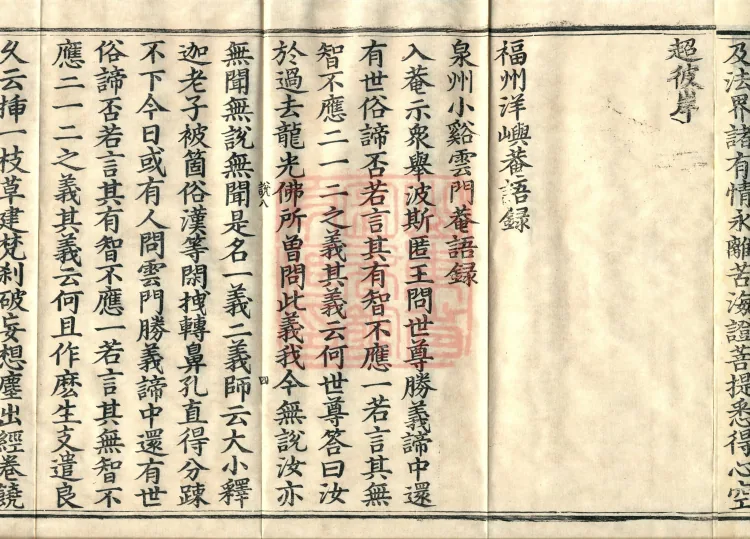 及法界諸有情永離苦海證菩提悉得心空
超彼岸
福州洋嶼菴語録
泉州小谿雲門菴語録
入菴示衆舉波斯匿王問世尊勝義諦中還
有世俗諦否若言其有智不應一若言其無
智不應二一二之義其義云何世尊答曰汝
於過去龍光佛所曾問此義我今無說汝亦
四
無聞無說無聞是名一義二義師云大小釋
迦老子被箇俗漢等閑拽轉鼻孔直得分踈
不下今日或有人問雲門勝義諦中還有世
俗諦否若言其有智不應一若言其無智不
應二一二之義其義云何且作麽生支遣良
久云揷一枝草建梵刹破妄想塵出經卷饒